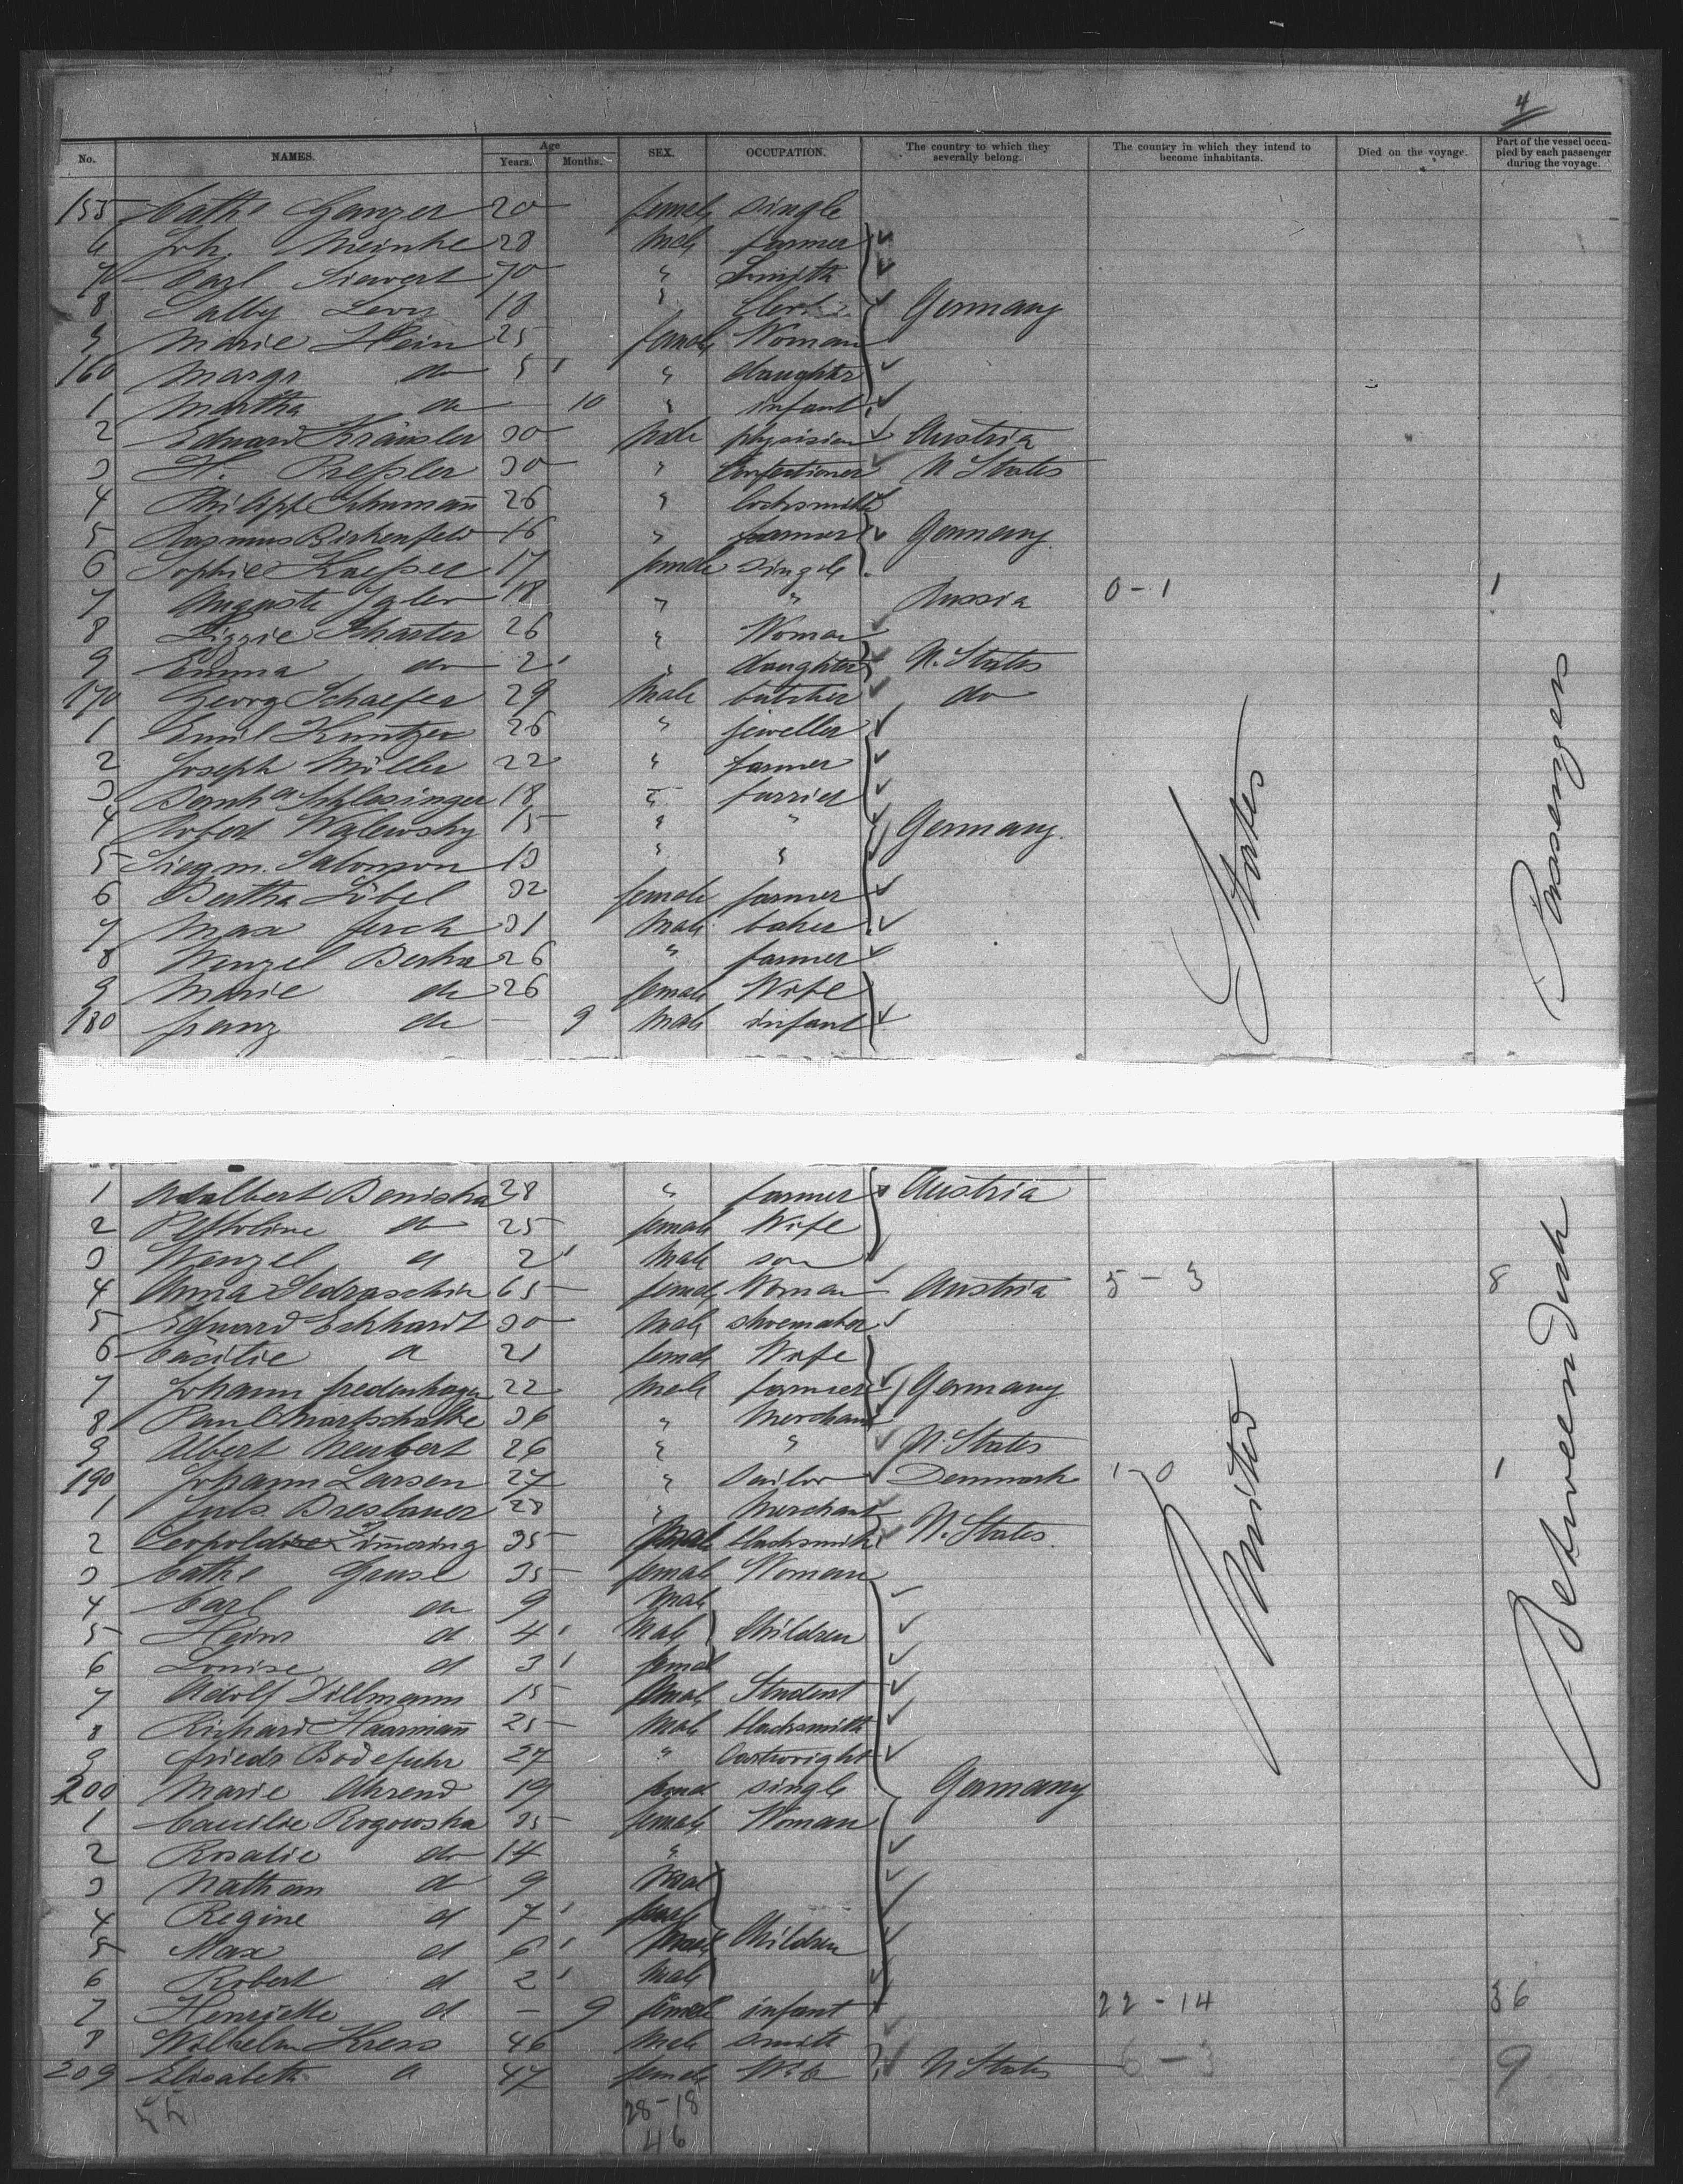 4
No. NAMES. Age Years. Months. SEX. OCCUPATION. The country to which they severally belong. The country in which they intend to become inhabitants. Died on the voyage. Part of the vessel occupied by each passenger during the voyage.
155 Cathe Ganzer 20 female single
6 Joh. Meinke 28 Male farmer
7 Carl Siewert 70 " Smith
8 Sally Levy 18 " Clerk Germany
9 Marie Hein 25 female Woman
160 Margr do 5 " daughter
1 Martha do 10 " infant
2 Eduard Kränsler 30 Male physician Austria
3 H. Preßler 30 " Confectioner U States
4 Philipp Schumañ 26 " locksmith
5 Rasmus Birkenfeld 16 " farmer Germany
6 Sophie Kaeßer 17 female single
7 Auguste Igler 18 " " Russia 0-1 1
8 Lizzie Scharter 26 " Woman
9 Emma do 2 " daughter U. States
170 Georg Schaefer 29 Male butcher do
1 Emil Kuntzer 26 " jeweller
2 Joseph Müller 22 " farmer
3 Bernhd Schlesinger 18 " furrier
4 Robert Walewsky 15 " " Germany.
5 Siegm. Salomon 13 " "
6 Bertha Löbel 32 female farmer
7 Max Jerch 31 Male baker
8 Wenzel Berka 26 " farmer
9 Marie do 26 female Wife
180 franz do 9 Male infant
1 Adalbert Benishka 28 " farmer Austria
2 do 25 female Wife
3 Wenzel d 2 Male son
4 Anna 65 female Woman Austria 5-3 8
5 Eduard Eckhardt 30 Male shoemaker
6 Cäcilie d 21 female Wife
7 Johann fredenhagen 22 Male farmer Germany
8 Paul 36 " Merchant
9 Albert Neubert 26 " " U. States
190 Johann Larsen 27 " Sailor Denmark 1-0 1
1 Juls. Breslauer 28 " Merchant
2 Leopold 35 Male blacksmith U. States.
3 Cathe Gause 35 female Woman
4 Carl do 9 Male
5 Heinr d 4 Male Children
6 Louise d 3 female
7 Adolf Dillmann 15 Male Student
8 Richard Haarmañ 25 Male blacksmith
9 friedr Bödefuhr 27 " Cartwright
200 Marie Ahrend 19 female single Germany
1 Caecilie Rogowska 35 female Woman
2 Rosalie do 14 "
3 Nathan do 9 Male
4 Regine d 7 female
5 Max d 6 Male Children
6 Robert d 2 Male
7 Henriette d - 9 female infant 22-14 36
8 Wilhelm Kress 46 Male smith
209 Elisabeth d 47 female Wife U States 6-3 9
28-18
46
United States
Between Deck Passengers